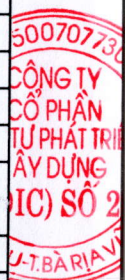 500707730
CÔNG TY
CỔ PHẦN
TƯ PHÁT TRIỂ
ÂY DỰNG
IC) SỐ 2
U-T.BÀ RỊA V